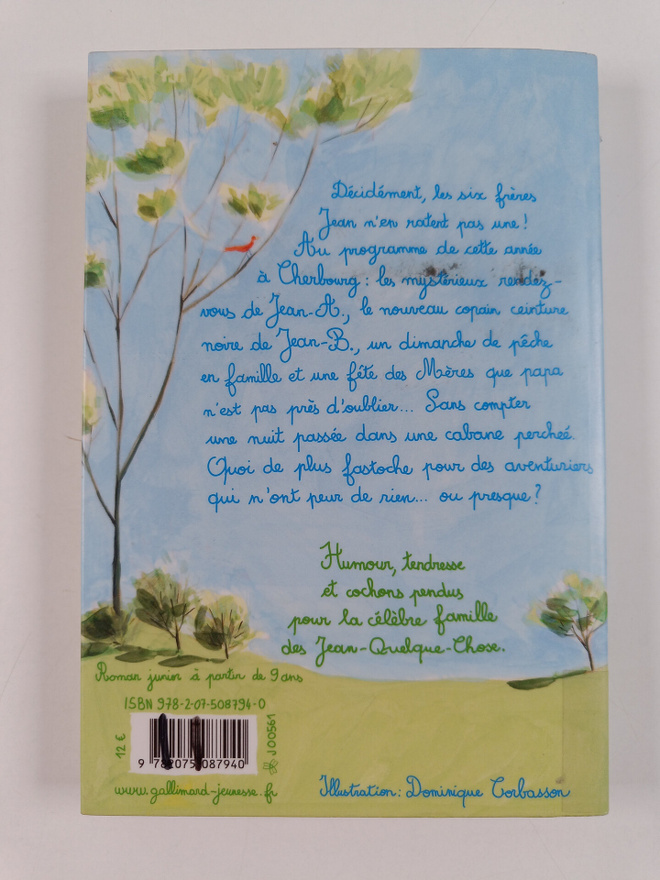 Décidément, les six frères
Jean n'en ratent pas une !
Au programme de cette année
à Cherbourg : les mystérieux rendez-
vous de Jean-A., le nouveau copain ceinture
noire de Jean-B., un dimanche de pêche
en famille et une fête des Mères que papa
n'est pas près d'oublier... Sans compter
une nuit passée dans une cabane percheé.
Quoi de plus fastoche pour des aventuriers
qui n'ont peur de rien... ou presque ?
Humour, tendresse
et cochons pendus
pour la célèbre famille
des Jean-Quelque-Chose.
Roman junior à partir de 9 ans
ISBN 978-2-07-508794-0
12 €
9 782075 087940
J00561
www.gallimard-jeunesse.fr
Illustration : Dominique Corbasson